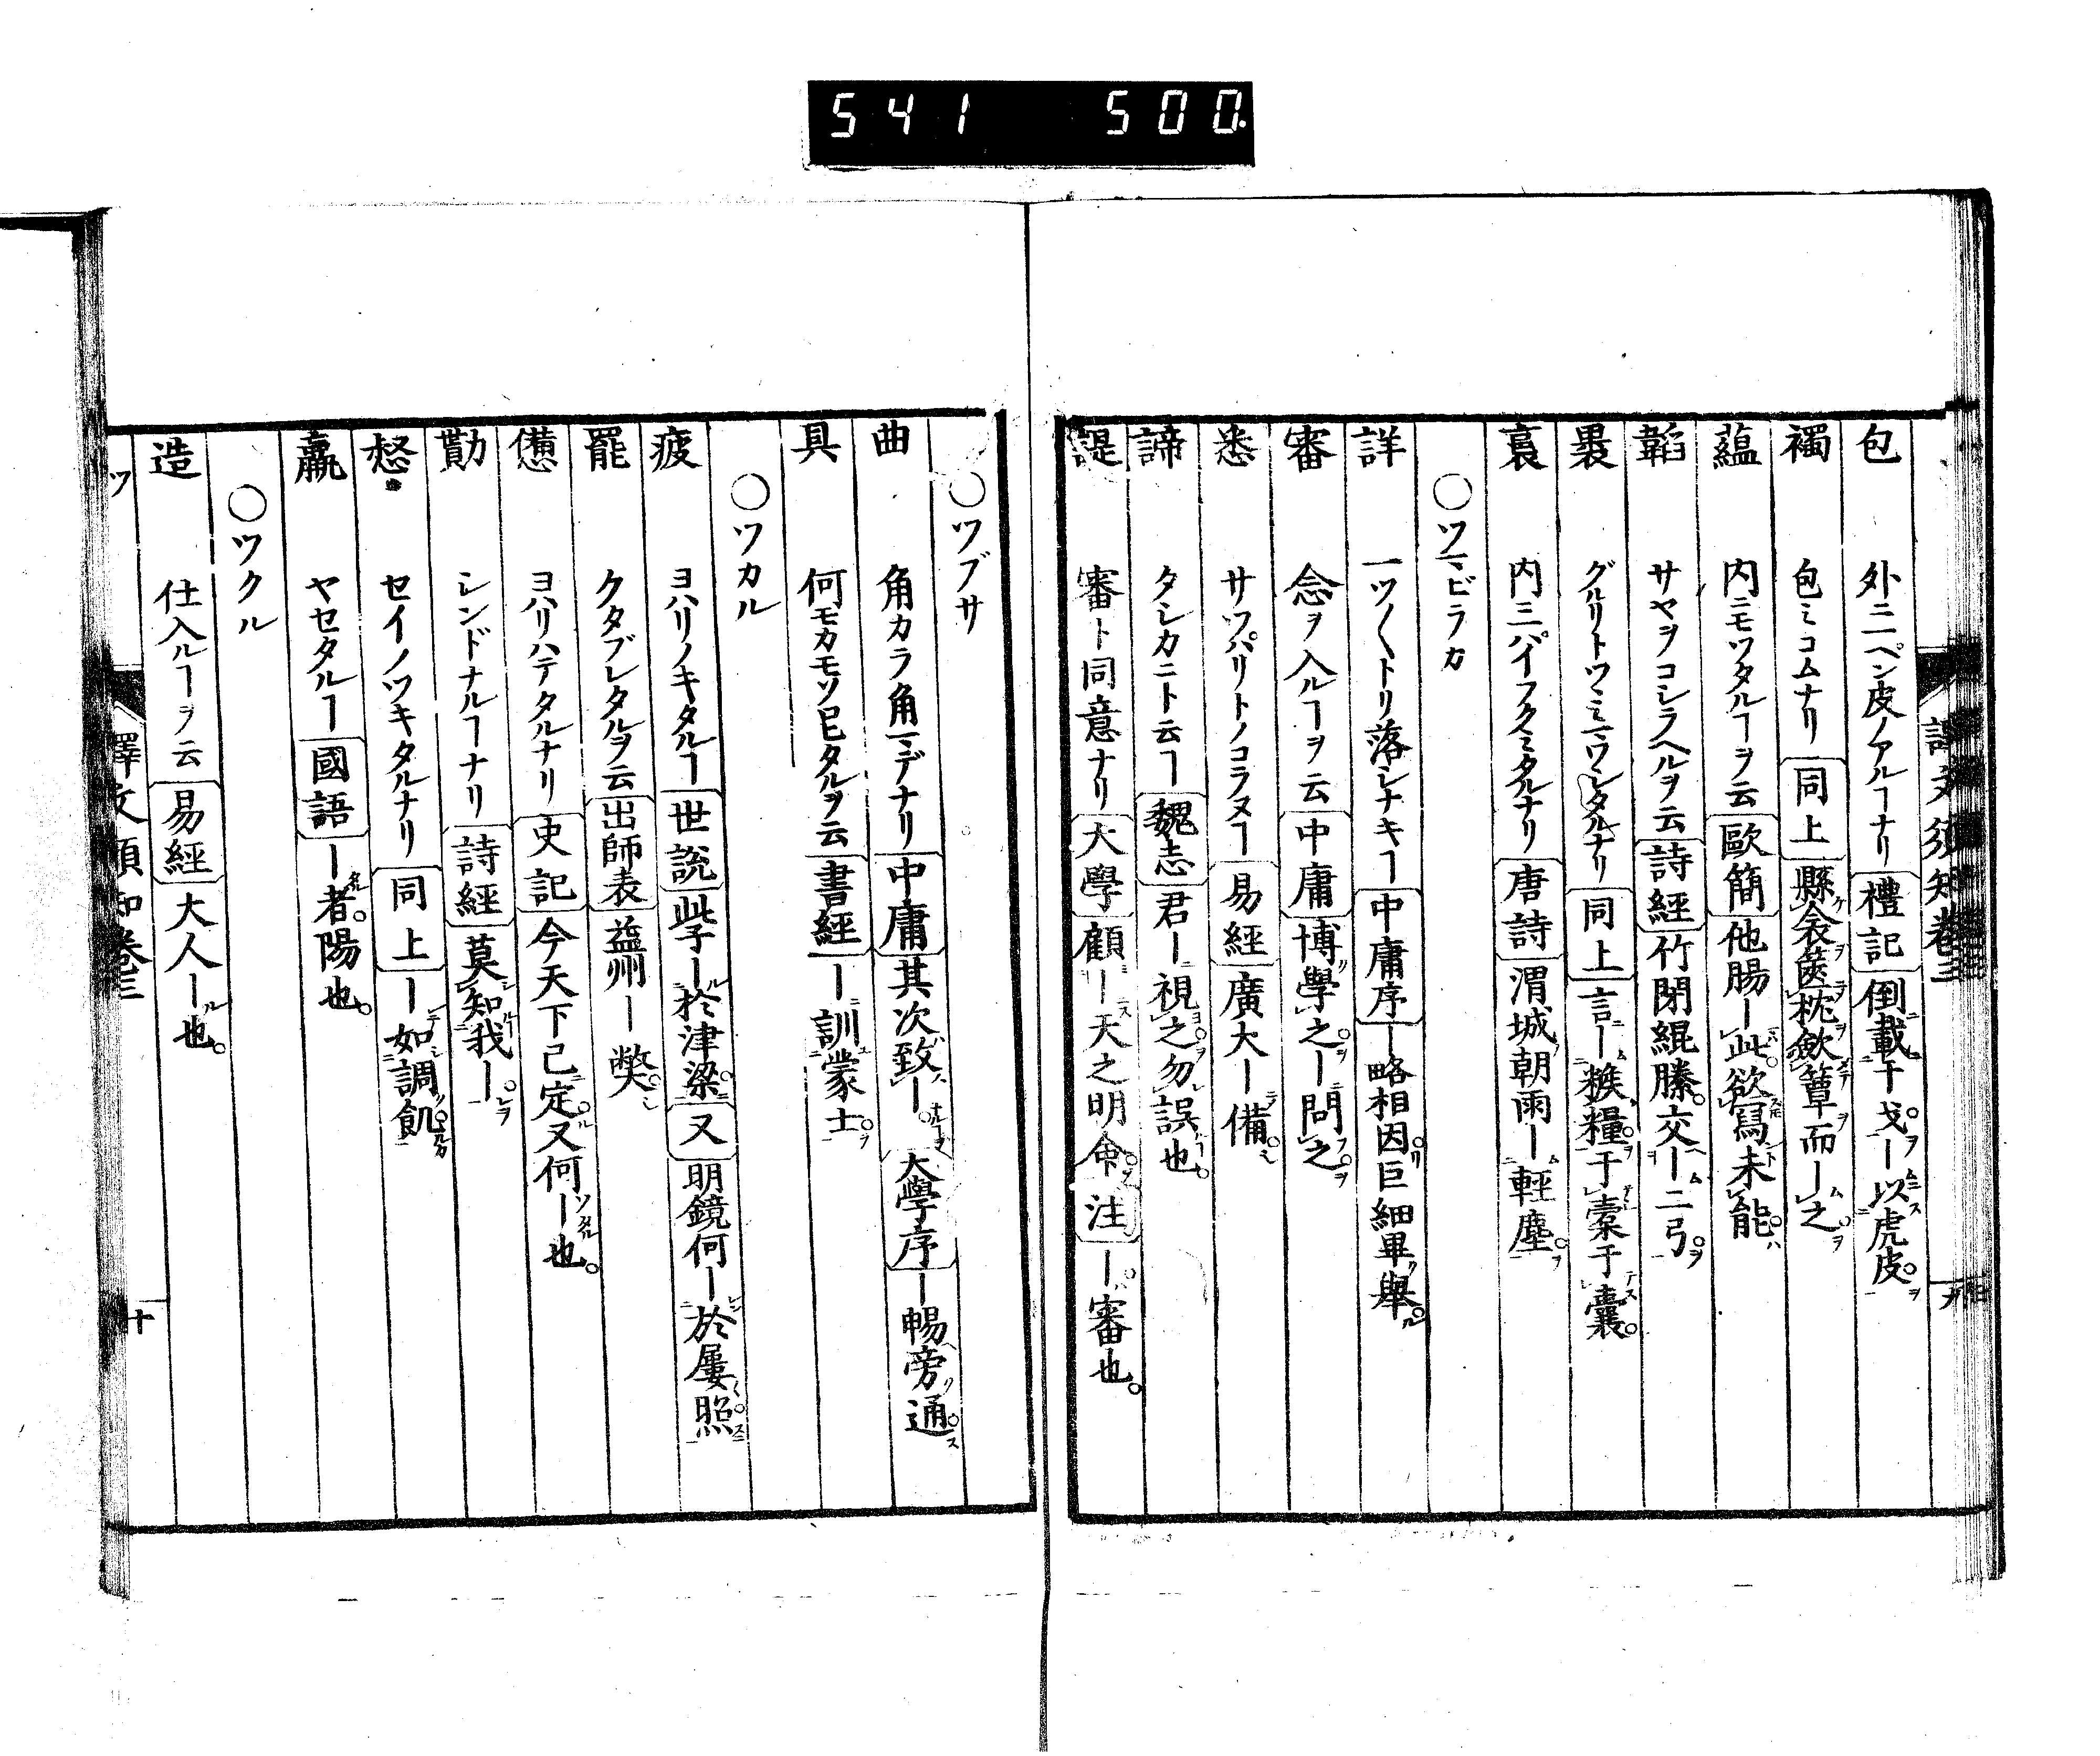 541 500.
包 外ニ一ペン皮ノアルヿナリ 禮記 倒載干戈ー以虎皮
襡 包ミコムナリ 同上 縣衾篋枕斂簟而ー之
蘊 内ニモツタルヿヲ云 歐簡 他腸ー此欲寫未能
韜 サヤヲコシラヘルヲ云 詩経 竹閉緄縢交ー二弓
裹 グルリトツヽミマワシタルナリ 同上 言ー糇糧于橐于囊
裛 内ニパイフクミタルナリ 唐詩 渭城朝雨ー輕塵
〇ツマビラカ
詳 一ツ〱トリ落シナキヿ 中庸序 ー略相因巨細畢舉
審 念ヲ入ルヿヲ云 中庸 博學之ー問之
悉 サツパリトノコラヌヿ 易經 廣大ー備
諦 タシカニト云ヿ 魏志 君ー視之勿誤也
諟 審ト同意ナリ 大學 顧ー天之明命 注 ー審也
〇ツブサ
曲 角カラ角マデナリ 中庸 其次致ー 大學序 ー暢旁通
具 何モカモソロヒタルヲ云 書經 ー訓蒙士
〇ツカル
疲 ヨハリノキタルヿ 世說 此子ー於津梁 又 明鏡何ー於屢照
罷 クタブレタルヲ云 出師表 益州ー獘
憊 ヨハリハテタルナリ 史記 今天下已定又何ー也
勩 シンドナルヿナリ 詩經 莫知我ー
惄 セイノツキタルナリ 同上 ー如調飢
羸 ヤセタルヿ 國語 ー者陽也
〇ツクル
造 仕入ルヿヲ云 易經 大人ー也
ツ 譯文須知卷三 十